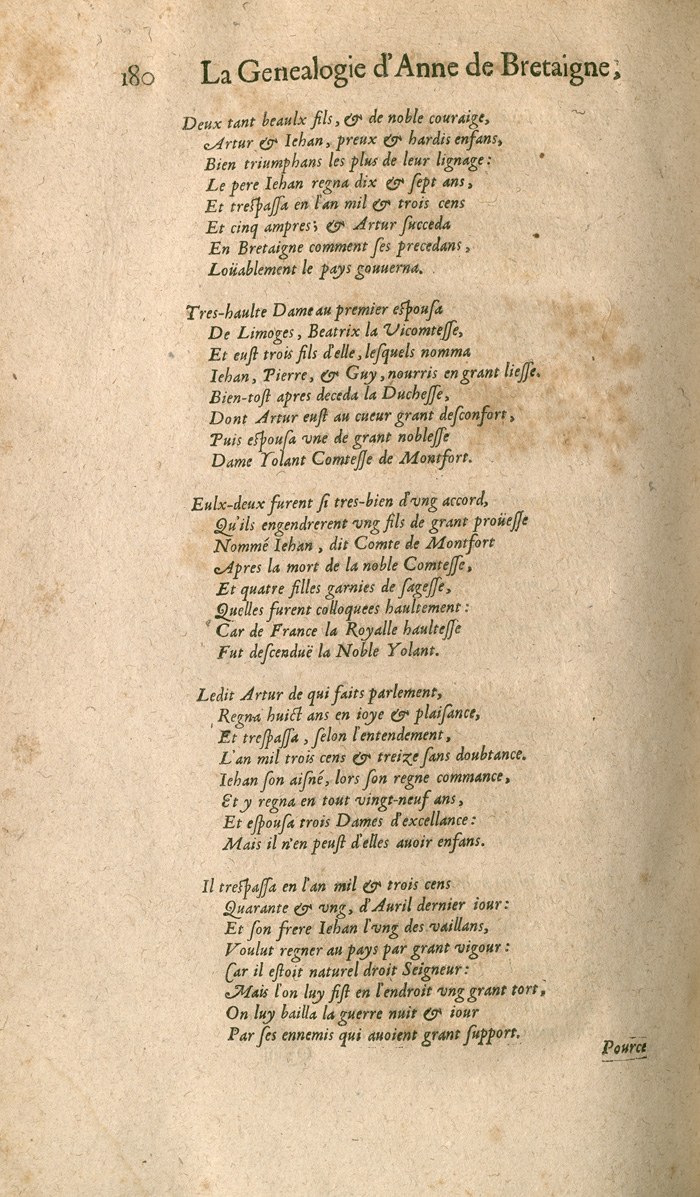 180 La Genealogie d'Anne de Bretaigne,
Deux tant beaulx fils, & de noble couraige,
Artur & Iehan, preux & hardis enfans,
Bien triumphans les plus de leur lignage:
Le pere Iehan regna dix & ſept ans,
Et treſpaſſa en l'an mil & trois cens
Et cinq ampres; & Artur ſucceda
En Bretaigne comment ſes precedans,
Loüablement le pays gouuerna.
Tres-haulte Dame au premier eſpouſa
De Limoges, Beatrix la Vicomteſſe,
Et euſt trois fils d'elle, leſquels nomma
Iehan, Pierre, & Guy, nourris en grant lieſſe.
Bien-toſt apres deceda la Ducheſſe,
Dont Artur euſt au cueur grant deſconfort,
Puis eſpouſa vne de grant nobleſſe
Dame Yolant Comteſſe de Montfort.
Eulx-deux furent ſi tres-bien d'vng accord,
Qu'ils engendrerent vng fils de grant proüeſſe
Nommé Iehan, dit Comte de Montfort
Apres la mort de la noble Comteſſe,
Et quatre filles garnies de ſageſſe,
Quelles furent colloquees haultement:
Car de France la Royalle haulteſſe
Fut deſcenduë la Noble Yolant.
Ledit Artur de qui faits parlement,
Regna huict ans en ioye & plaiſance,
Et treſpaſſa, ſelon l'entendement,
L'an mil trois cens & treize ſans doubtance.
Iehan ſon aiſné, lors ſon regne commance,
Et y regna en tout vingt-neuf ans,
Et eſpouſa trois Dames d'excellance:
Mais il n'en peuſt d'elles auoir enfans.
Il treſpaſſa en l'an mil & trois cens
Quarante & vng, d'Auril dernier iour:
Et ſon frere Iehan l'vng des vaillans,
Voulut regner au pays par grant vigour:
Car il eſtoit naturel droit Seigneur:
Mais l'on luy fiſt en l'endroit vng grant tort,
On luy bailla la guerre nuit & iour
Par ſes ennemis qui auoient grant ſupport.
Pource